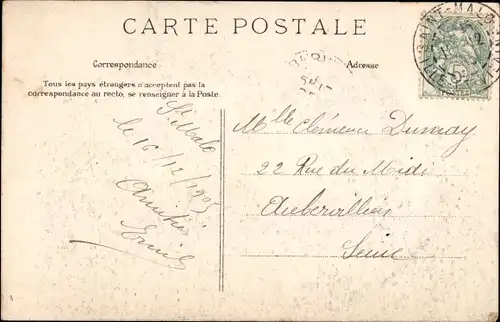 CARTE POSTALE
Correspondance
Adresse
Tous les pays étrangers n'acceptent pas la
correspondance au recto, se renseigner à la Poste.
St Malo
le 16/12/1905
Amitiés
Mlle Clémence Dumay
22 Rue du Midi
Aubervilliers
Seine